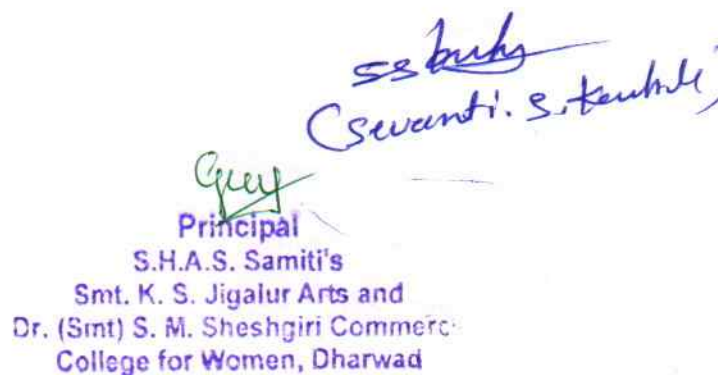 (Sevanti. S.
Principal
S.H.A.S. Samiti's
Smt. K. S. Jigalur Arts and
Dr. (Smt) S. M. Sheshgiri Commerc
College for Women, Dharwad